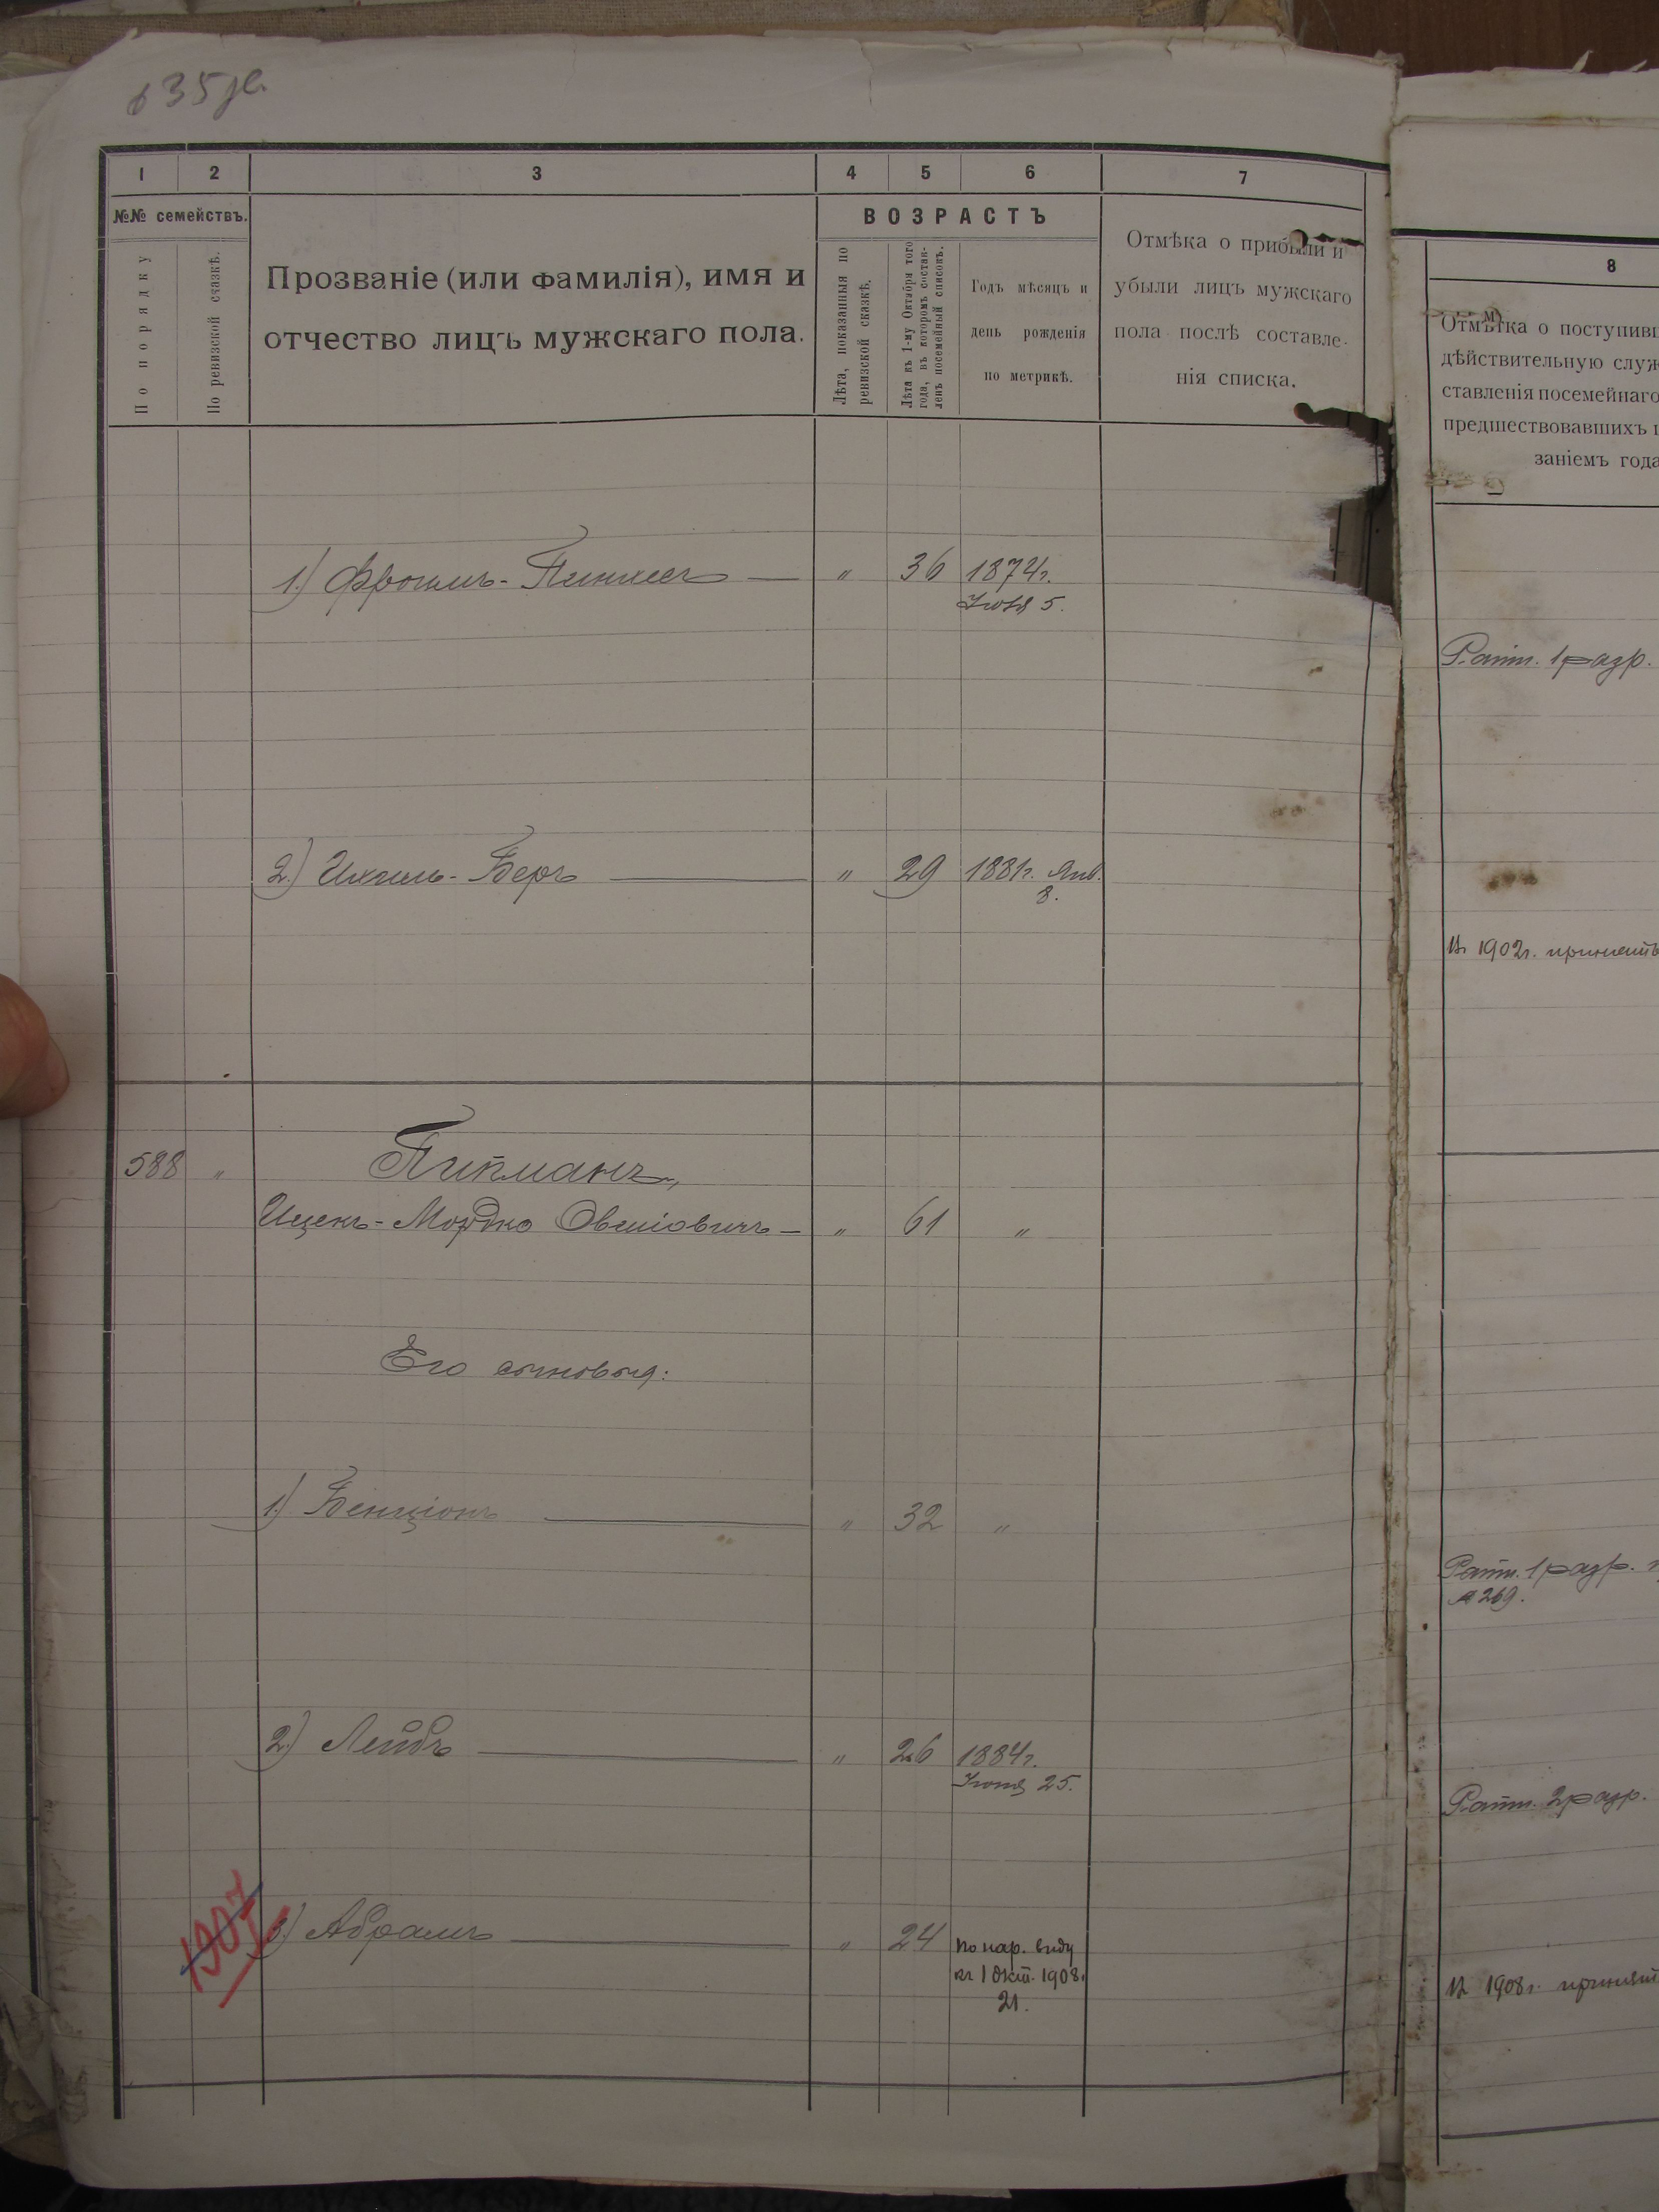 1 2 3 4 5 6 7
№№ семействъ.
По порядку
По ревизской сказкѣ.
Прозваніе (или фамилія), имя и
отчество лицъ мужскаго пола.
ВОЗРАСТЪ
Лѣта, показанныя по
ревизской сказкѣ.
Лѣта къ 1-му Октября того
года, въ которомъ состав-
ленъ посемейный списокъ.
Годъ мѣсяцъ и
день рожденія
по метрикѣ.
Отмѣка о прибыли и
убыли лицъ мужскаго
пола послѣ составле-
нія списка.
1.) Фроимъ-Пинхесъ — " 36 1874г.
5.
2.) Ихиль-Беръ — " 29 1881г. Янв.
8.
588 "
Питманъ,
Ицекъ-Мордко Овшіовичъ — " 61 "
Его сыновья:
1.) Бенціонъ — " 32 "
2.) Лейбъ — " 26 1884г.
25.
1907
3.) Абрамъ — " 24 по нар. виду
къ 1 Окт. 1908.
21.
8
Отмѣтка о поступивш
дѣйствительную служ
ставленія посемейнаго
предшествовавшихъ
заніемъ года
Ратн. 1 разр.
Въ 1902г. принятъ
Ратн. 1 разр.
№ 269.
Ратн. 2 разр.
Въ 1908г. принят